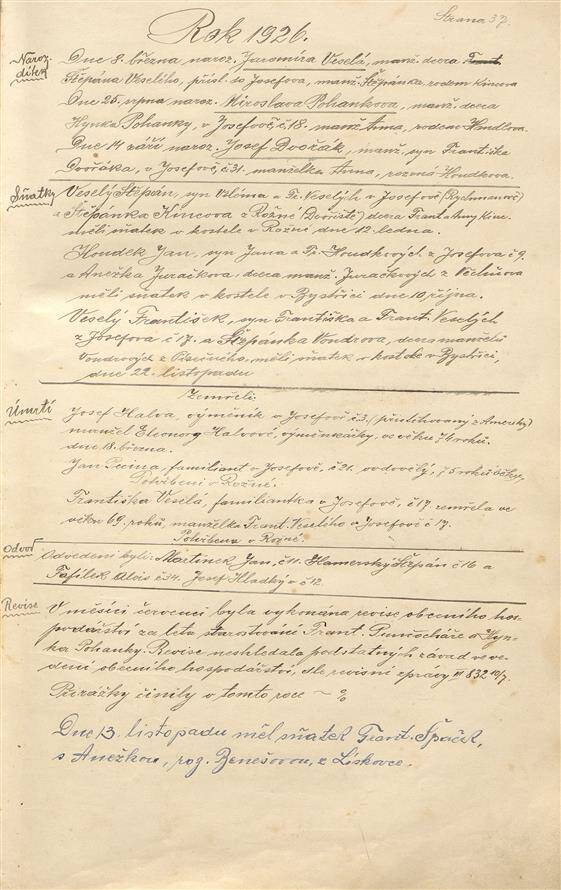 Strana 37.
Rok 1926.
Naroz. dítek
Dne 8. března naroz. Jaromíra Veselá, manž. dcera Frant.
Štěpána Veselého, přísl. do Josefova, manž. Štěpánka, rodem Kincova
Dne 25. srpna naroz. Miroslava Pohankova, manž. dcera
Hynka Pohanky, v Josefově, č. 18. manž. Anna, rodem Handlova.
Dne 14 září naroz. Josef Dvořák, manž. syn Františka
Dvořáka, v Josefově, č. 31. manželka Anna, rozená Houdkova.
Sňatky
Veselý Štěpán, syn Viléma a Fr. Veselých v Josefově (Rychmanově)
a Štěpánka Kincova z Rožné (Dvořiště) dcera Frant. a Anny Kinc.
měli sňatek v kostele v Rožné dne 12. ledna.
Houdek Jan, syn Jana a Fr. Houdkových z Josefova č 9.
a Anežka Juračkova dcera manž. Juračkových z Věchnova
měli sňatek v kostele v Bystřici dne 10 října.
Veselý František, syn Františka a Frant. Veselých
z Josefova č 17. a Štěpánka Vondrova, dcera manželů
Vondrových z měli sňatek v kostele v Bystřici,
dne 22. listopadu
Úmrtí
Zemřeli:
Josef Halva, výminík v Josefově č. 3., (přistěhovaný z Ameriky)
manžel Eleonory Halvové, výminkářky, ve věku 74 roků.
dne 18. března.
Jan Pecina, familiant v Josefově, č. 21. vdovělý, 75 roků
Pohřbeni v Rožné.
Františka Veselá, familiantka v Josefově, č 17. zemřela ve
věku 69. roků, manželka Frant. Veselého v Josefově č 17.
Pohřbena v Rožné.
Odvod
Odvedeni byli: Martinek Jan, č. 11. Hamerský Štěpán č 16 a
Fafílek Alois č. 34. Josef Hladký v č 12
Revise
V měsíci červenci byla vykonána revise obecního hos-
podářství za leta starostování Frant. Punčocháře a Hyn-
ka Pohanky. Revise neshledala podstatných závad ve ve-
dení obecního hospodářství, dle revisní zprávy III 832 10/7.
Přirážky činily v tomto roce ~ %
Dne 13. listopadu měl sňatek Frant. Špaček,
s Anežkou, roz. Benešovou, z Lískovce.